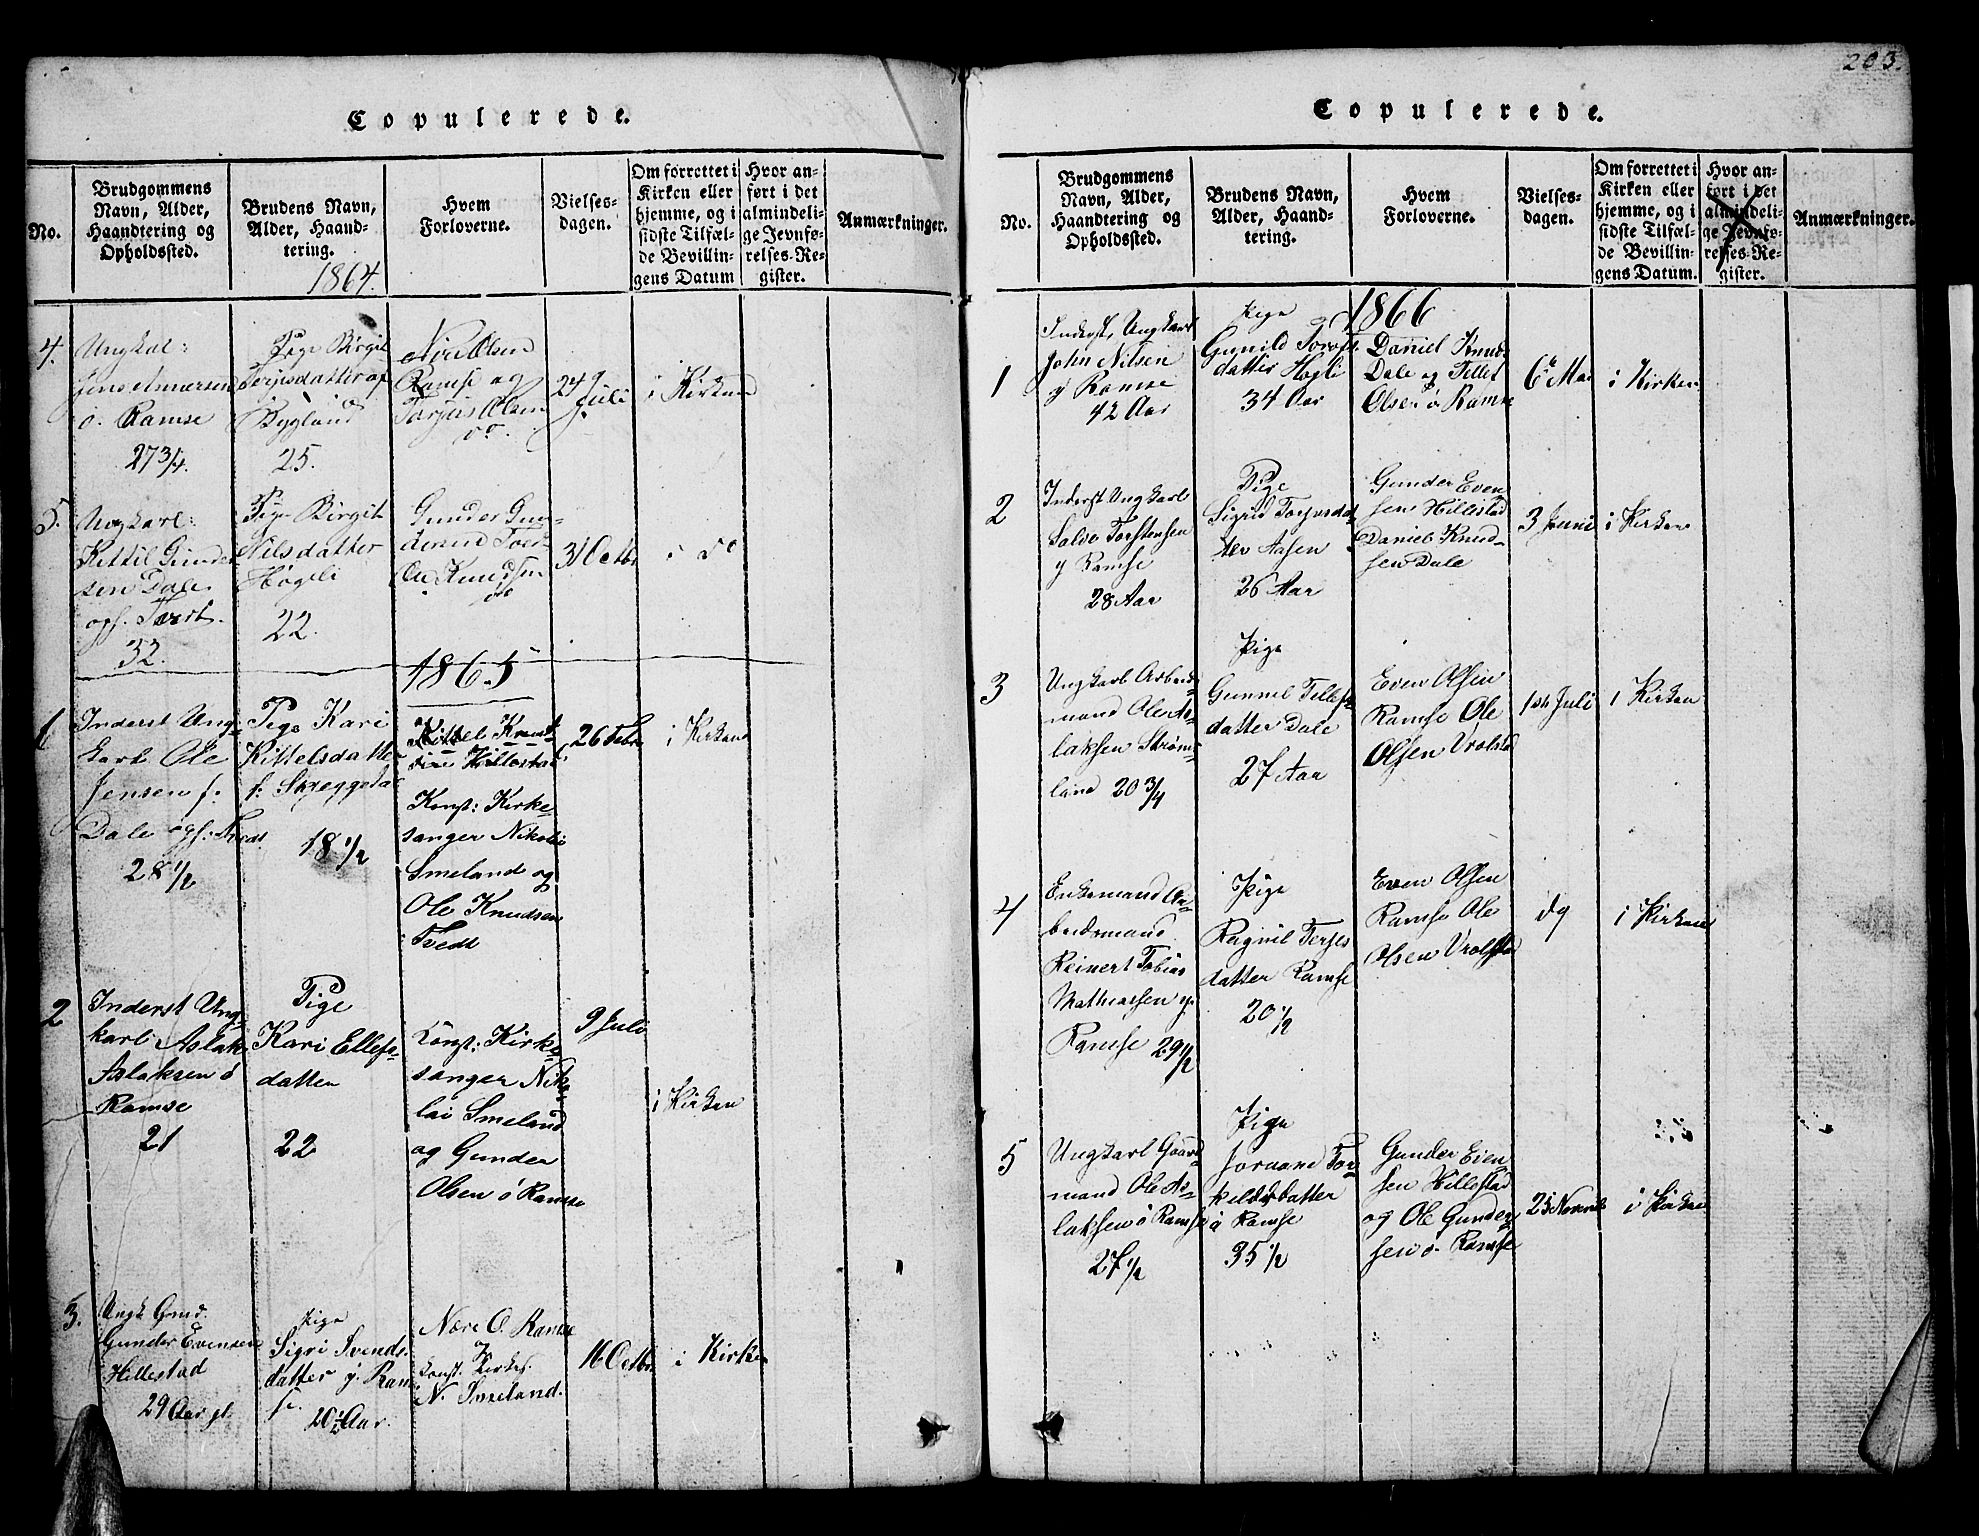 203.
Copulerede.
No.
Brudgommens
Navn, Alder,
Haandtering og
Opholdssted.
Brudens Navn,
Alder, Haand-
tering.
1864.
Hvem
Forloverne.
Vielses-
dagen.
Om forrettet i
Kirken eller
hjemme, og i
sidste Tilfæl-
de Bevillin-
gens Datum
Hvor an-
ført i det
almindeli-
ge Jevnfø-
relses-Re-
gister.
Anmærkninger.
4.
Ungkal:
Jens
o. Ramse
27 3/4.
Pige Birgit
Terjisdatter af
Bygland
25.
Olsen
Ramse og
Torjus Olsen
do.
24
Juli
i Kirken
5.
Ungkarl:
Kittil Gunder
sen Dale
opf. Tveit.
32.
Pige Birgit
Nilsdatter
Høgeli
22.
Gunder Gun-
Ole Knudsen
do
31 Octbr
i do
1865
1
Inderst Ung-
karl Ole
Jensen f.
Dale opf. Tvedt
28 1/2
Pige Kari
Kittelsdatter
f. Skreggedal
18 1/2
Kittel Knut-
sen Hillestad
Konst: Kirke-
sanger Nikolai
Smeland og
Ole Knudsen
Tvedt
26 Febr
i Kirken
2
Inderst Ung-
karl Aslak
Aslaksen ó
Ramse
21
Pige
Kari Ellefs-
datter
22
Konst: Kirke-
sanger Niko-
lai Smeland
og Gunder
Olsen ó Ramse
9 Juli
i Kirken
3.
Ungk Grmd.
Gunder Evensen
Hillestad
29 Aar gl.
Pige
Sigri Svends-
datter y. Ram-
se.
20 1/2 Aar.
Nere O. Ramse
Konst. Kirkes.
N. Smeland.
16 Octbr.
i Kirken
Copulerede.
No.
Brudgommens
Navn, Alder,
Haandtering og
Opholdssted.
Brudens Navn,
Alder, Haand-
tering.
Hvem
Forloverne.
Vielses-
dagen.
Om forrettet i
Kirken eller
hjemme, og i
sidste Tilfæl-
de Bevillin-
gens Datum.
Hvor an-
ført i det
almindeli-
ge Jevnfø-
relses-Re-
gister.
Anmærkninger.
1866
1
Inderst, Ungkarl
John Nilsen
y Ramse
42 Aar
Pige
Gunild
datter Høgli
34 Aar
Daniel Knuds.
Dale og Tellef
Olsen ó Ramse
6 Mai
i Kirken
2
Inderst Ungkarl
Salve Torstensen
y Ramse
28 Aar
Pige
Sigrid Torjusdat-
ter Aasen
26 Aar
Gunder Even-
sen Hillestad
Daniel Knud-
sen Dale
3 Juni
i Kirken
3
Ungkarl Arbeids-
mand Ole As-
laksen Strøm-
land 20 3/4
Pige
Gunnil Tellefs-
datter Dale
27 Aar
Even Olsen
Ramse Ole
Olsen Vrolstad
1ste Juli
i Kirken
4
Enkemand Ar-
beidsmand
Reinert Tobias
Mathiassen y.
Ramse 29 1/2
Pige
Ragnil Terjes
datter Ramse
20 1/2
Even Olsen
Ramse Ole
Olsen Vrolstad
i Kirken
5
Ungkarl Gaard-
mand Ole As-
laksen ó Ramse
27 1/2
Pige
Joraand Tor-
datter
ó Ramse
35 1/2
Gunder Even
sen Hillestad
og Ole Gunder-
sen ó. Ramse
25 Novemb
i Kirken